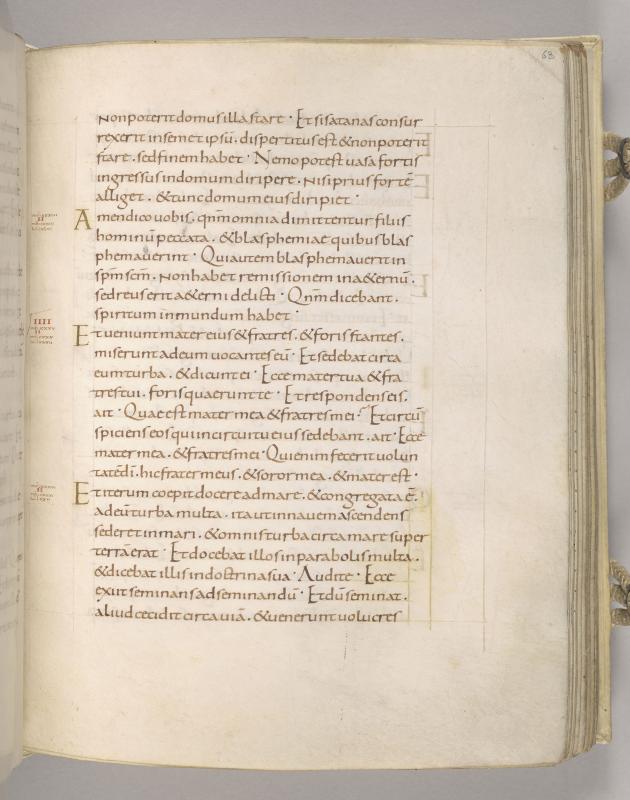 63
Non poterit domus illa stare · Et si satanas consur
rexerit in semet ipsū. dispertitus est & non poterit
stare. sed finem habet · Nemo potest uasa fortis
ingressus in domum diripere. nisi prius fortē
alliget. & tunc domum eius diripiet ·
Amen dico uobis. qnm̄ omnia dimittentur filiis
hominū peccata. & blasphemiae quibus blas
phemauerint · Qui autem blasphemauerit in
spm̄ scm̄. Non habet remissionem in a&ernū.
sed reus erit a&erni delicti · Qnm̄ dicebant.
spiritum inmundum habet ·
Et ueniunt mater eius & fratres. & foris stantes.
miserunt ad eum uocantes eū · Et sedebat circa
eum turba. & dicunt ei · Ecce mater tua & fra
tres tui. foris quaerunt te · Et respondens eis.
ait · Quae est mater mea & fratres mei · Et circū
spiciens eos qui in circuitu eius sedebant. ait · Ecce
mater mea. & fratres mei · Qui enim fecerit uolun
tatē dī. hic frater meus. & soror mea. & mater est ·
Et iterum coepit docere ad mare. & congregata ē.
ad eū turba multa. ita ut in nauem ascendens
seder& in mari. & omnis turba circa mare super
terrā erat · Et docebat illos in parabolis multa.
& dicebat illis in doctrina sua · Audite · Ecce
exiit seminans ad seminandū · Et dū seminat.
aliud cecidit circa uiā. & uenerunt uolucres
IIII